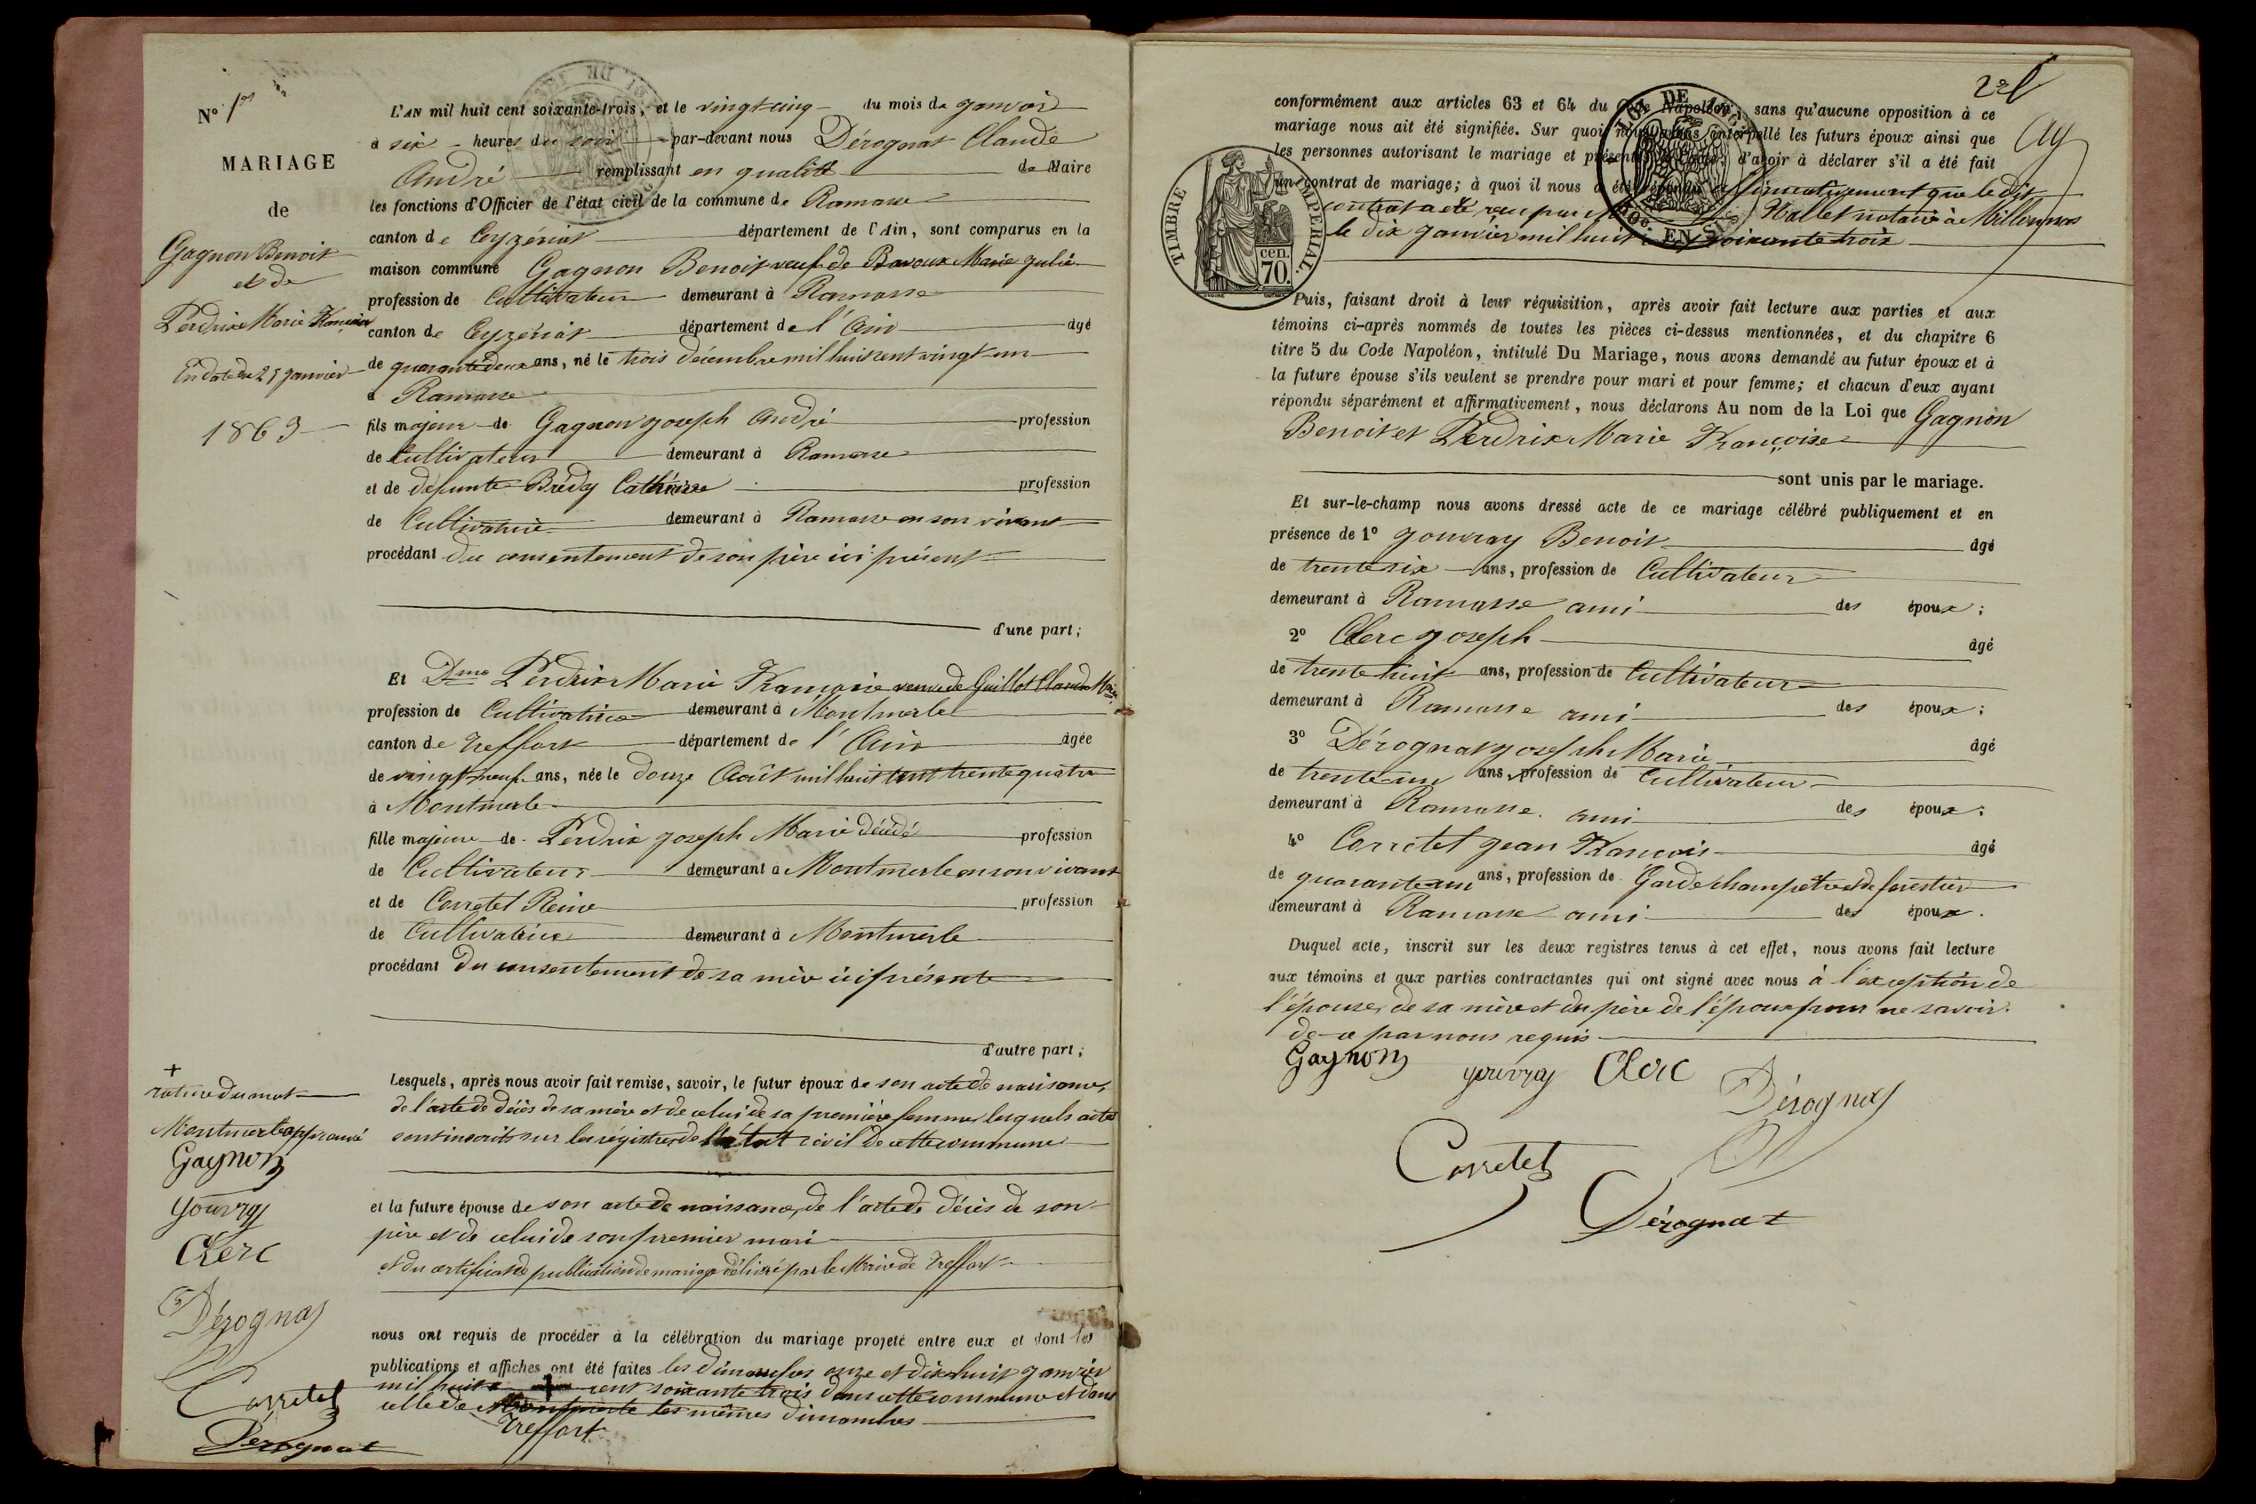 N° 1er
MARIAGE
de
Gagnon Benoit
et de
Perdrix Marie Françoise
En date du 25 janvier
1863
L'AN mil huit cent soixante-trois, et le vingt cinq du mois de janvier
à six heures du soir par-devant nous Dérognat Claude
André remplissant en qualité de Maire
les fonctions d'Officier de l'état civil de la commune de Ramasse
canton de Ceyzériat département de l'Ain, sont comparus en la
maison commune Gagnon Benoit veuf de Bavoux Marie Julie
profession de Cultivateur demeurant à Ramasse
canton de Ceyzériat département de l'Ain âgé
de quarante deux ans, né le trois décembre mil huit cent vingt un
à Ramasse
fils majeur de Gagnon joseph André profession
de Cultivateur demeurant à Ramasse
et de défunte Brédy Cathérine profession
de Cultivatrice demeurant à Ramasse en son vivant
procédant du consentement de son père ici présent
d'une part;
Et Dme Perdrix Marie Françoise veuve de Guillot Claude Marie
profession de Cultivatrice demeurant à Montmerle
canton de Treffort département de l'Ain âgée
de vingt neuf ans, née le douze Août mil huit cent trente quatre
à Montmerle
fille majeure de Perdrix joseph Marie décédé profession
de Cultivateur demeurant à Montmerle en son vivant
et de Corretel Reine profession
de Cultivatrice demeurant à Montmerle
procédant du consentement de sa mère ici présente
d'autre part;
Lesquels, après nous avoir fait remise, savoir, le futur époux de son acte de naissance,
de l'acte de décès de sa mère et de celui de sa première femme lesquels actes
sont inscrits sur les régistres de l'état civil de cette commune
et la future épouse de son acte de naissance, de l'acte de décès de son
père et de celui de son premier mari
et du certificat de publication de mariage délivré par le Maire de Treffort
nous ont requis de procéder à la célébration du mariage projeté entre eux et dont les
publications et affiches ont été faites les dimanches onze et dix huit janvier
mil huit + cent soixante trois dans cette commune et dans
celle de Montmerle les mêmes dimanches
Treffort
+
rature du mot
Montmerle approuvé
Gagnon
Gouvray
Clerc
Dérognat
Corretel
Dérognat
2e f
conformément aux articles 63 et 64 du Code Napoléon; sans qu'aucune opposition à ce
mariage nous ait été signifiée. Sur quoi nous avons interpellé les futurs époux ainsi que
les personnes autorisant le mariage et présentes à l'acte, d'avoir à déclarer s'il a été fait
un contrat de mariage; à quoi il nous a été répondu affirmativement que le dit
contrat a été reçu par Hallet notaire à
le dix janvier mil huit soixante trois
TIMBRE IMPÉRIAL.
70 cen.
LOI DE
EN SUS
Puis, faisant droit à leur réquisition, après avoir fait lecture aux parties et aux
témoins ci-après nommés de toutes les pièces ci-dessus mentionnées, et du chapitre 6
titre 5 du Code Napoléon, intitulé Du Mariage, nous avons demandé au futur époux et à
la future épouse s'ils veulent se prendre pour mari et pour femme; et chacun d'eux ayant
répondu séparément et affirmativement, nous déclarons Au nom de la Loi que Gagnon
Benoit et Perdrix Marie Françoise
sont unis par le mariage.
Et sur-le-champ nous avons dressé acte de ce mariage célébré publiquement et en
présence de 1° Gouvray Benoit âgé
de trente six ans, profession de Cultivateur
demeurant à Ramasse ami des époux;
2° Clerc joseph âgé
de trente huit ans, profession de Cultivateur
demeurant à Ramasse ami des époux;
3° Dérognat joseph Marie âgé
de trente un ans, profession de Cultivateur
demeurant à Ramasse. ami des époux;
4° Corretel jean François âgé
de quarante un ans, profession de Garde champêtre et forestier
demeurant à Ramasse ami des époux.
Duquel acte, inscrit sur les deux registres tenus à cet effet, nous avons fait lecture
aux témoins et aux parties contractantes qui ont signé avec nous à l'exception de
l'épouse, de sa mère et du père de l'époux pour ne savoir
de ce par nous requis
Gagnon
gouvray Clerc Dérognat
Corretel
Dérognat